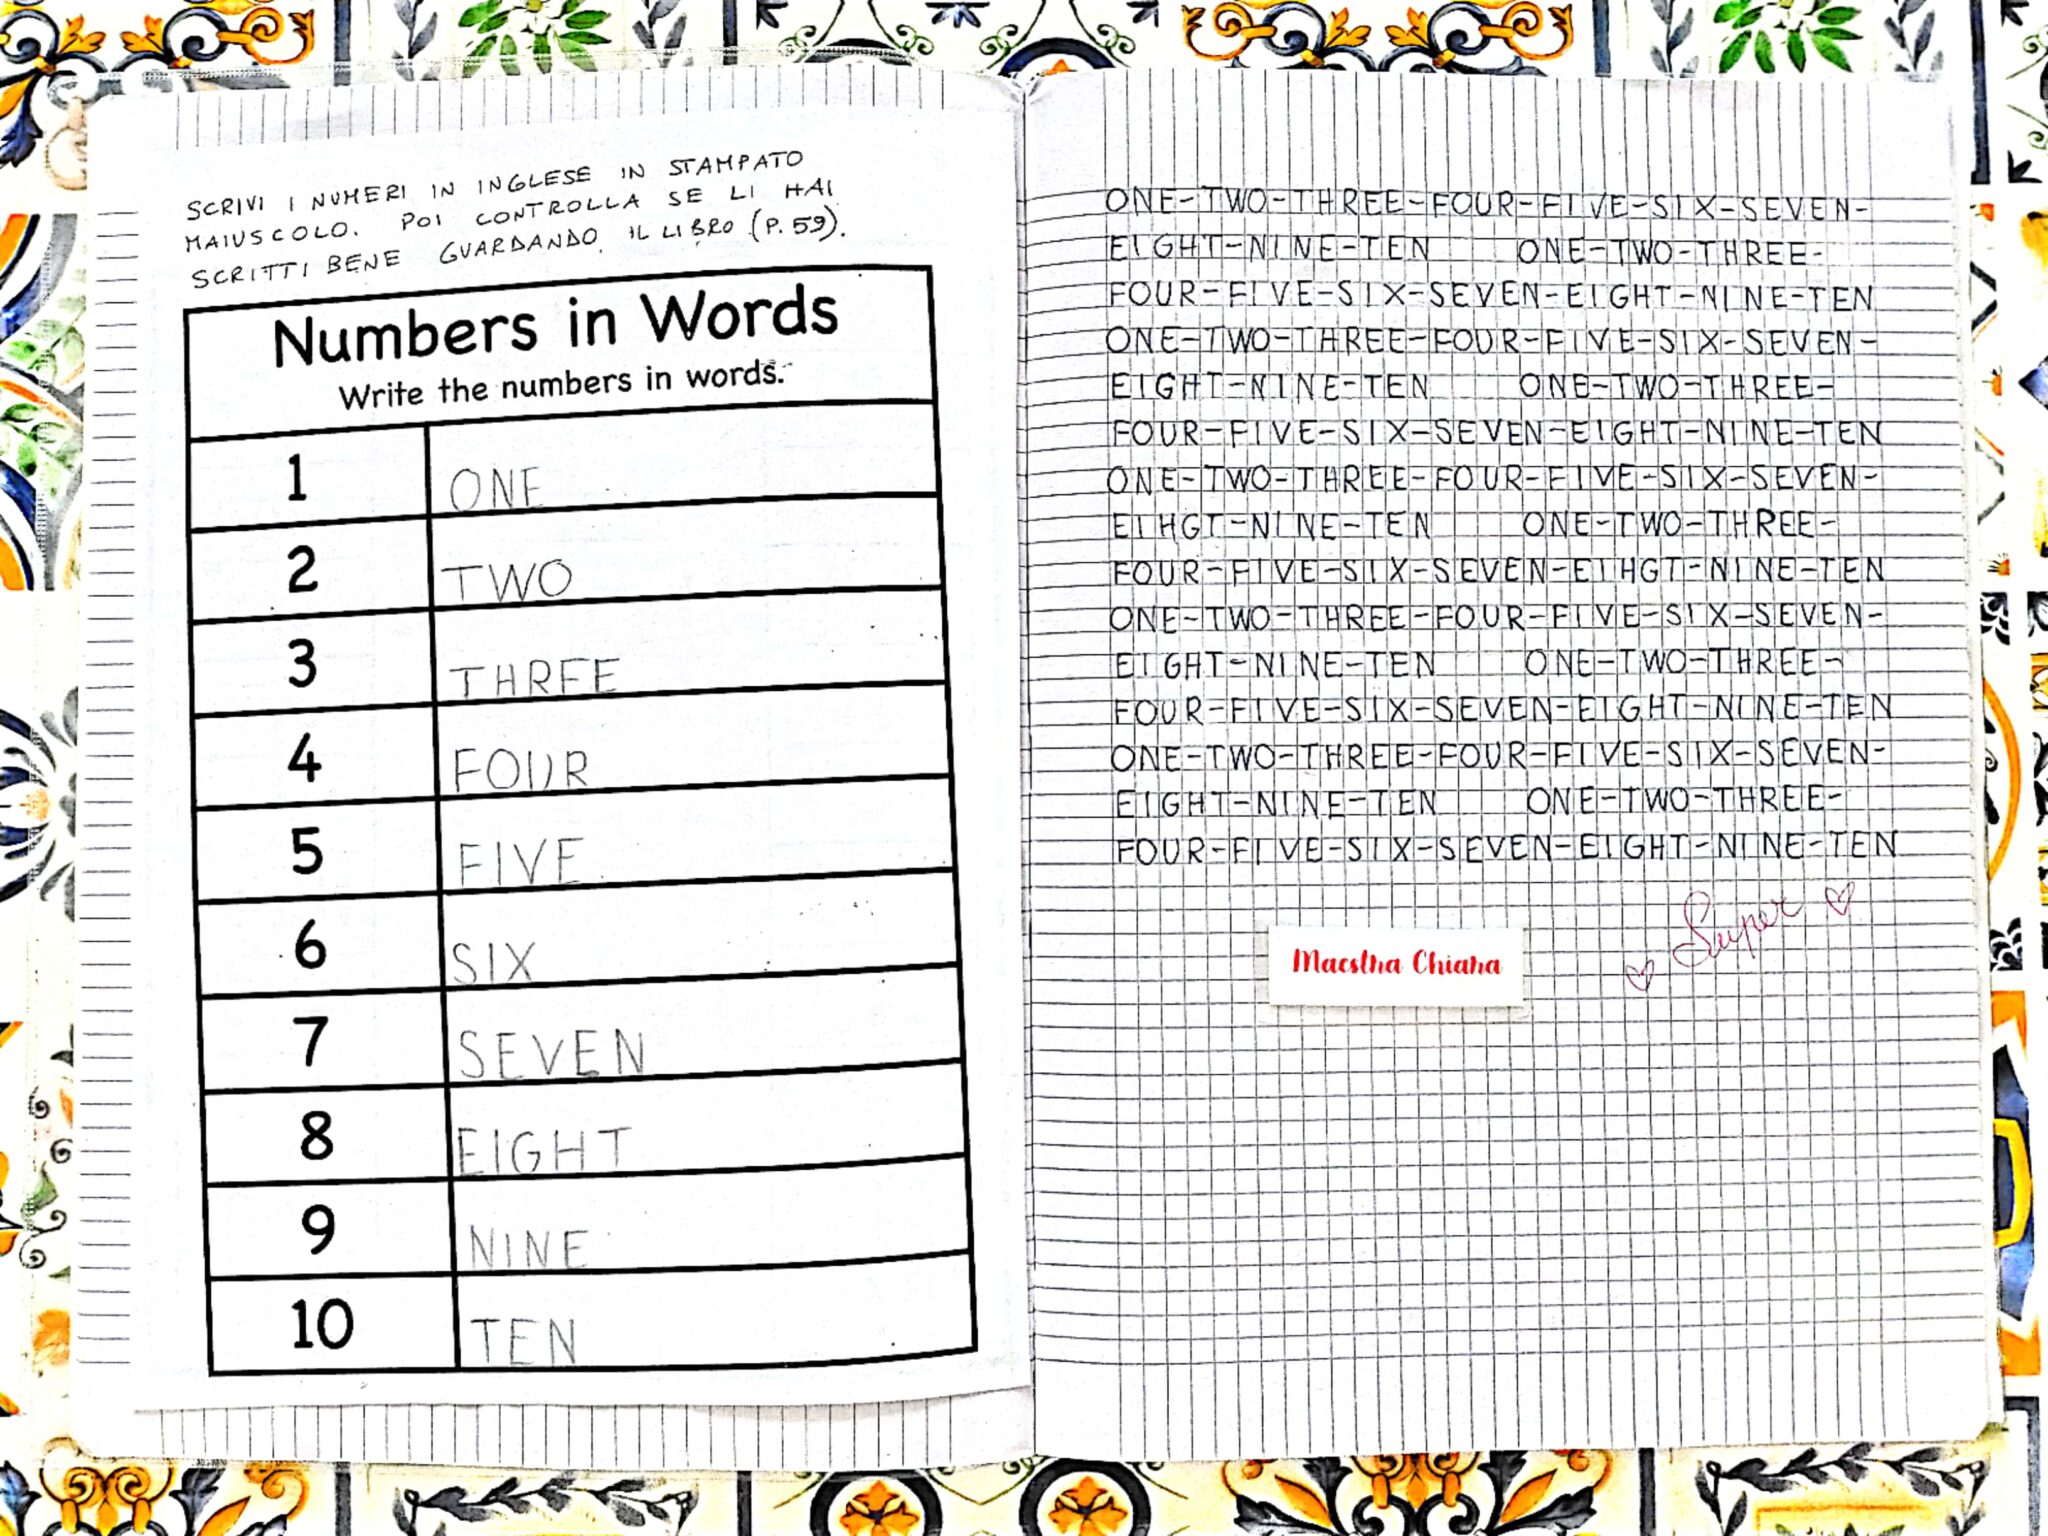 SCRIVI I NUMERI IN INGLESE IN STAMPATO
MAIUSCOLO. POI CONTROLLA SE LI HAI
SCRITTI BENE GUARDANDO IL LIBRO (P. 59).
Numbers in Words
Write the numbers in words.
1 ONE
2 TWO
3 THREE
4 FOUR
5 FIVE
6 SIX
7 SEVEN
8 EIGHT
9 NINE
10 TEN
ONE-TWO-THREE-FOUR-FIVE-SIX-SEVEN-
EIGHT-NINE-TEN ONE-TWO-THREE-
FOUR-FIVE-SIX-SEVEN-EIGHT-NINE-TEN
ONE-TWO-THREE-FOUR-FIVE-SIX-SEVEN-
EIGHT-NINE-TEN ONE-TWO-THREE-
FOUR-FIVE-SIX-SEVEN-EIGHT-NINE-TEN
ONE-TWO-THREE-FOUR-FIVE-SIX-SEVEN-
EIHGT-NINE-TEN ONE-TWO-THREE-
FOUR-FIVE-SIX-SEVEN-EIHGT-NINE-TEN
ONE-TWO-THREE-FOUR-FIVE-SIX-SEVEN-
EIGHT-NINE-TEN ONE-TWO-THREE-
FOUR-FIVE-SIX-SEVEN-EIGHT-NINE-TEN
ONE-TWO-THREE-FOUR-FIVE-SIX-SEVEN-
EIGHT-NINE-TEN ONE-TWO-THREE-
FOUR-FIVE-SIX-SEVEN-EIGHT-NINE-TEN
Super
Maestra Chiara